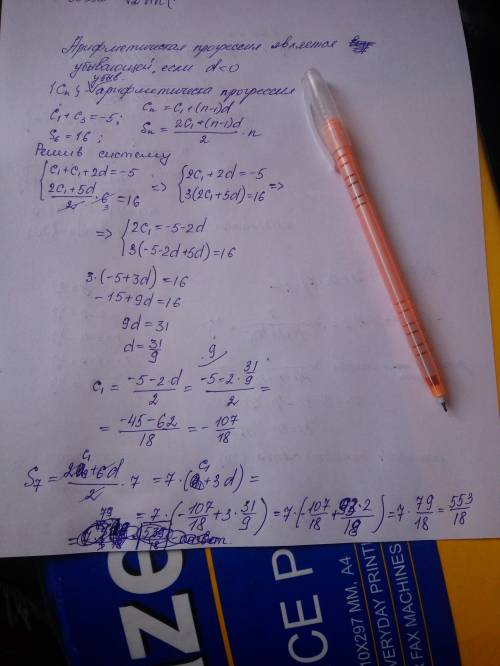 Арифметическая прогрессия является
убывающей, если d<0
убыв.
{Cn} арифметическа прогрессия
C₁+C₃=-5; Cn=C₁+(n-1)d
S₆=16; Sn=2C₁+(n-1)d/2·n
Решив систему
{C₁+C₁+2d=-5 => {2C₁+2d=-5
2C₁+5d/2·6 3=16 3(2C₁+5d)=16 =>
=> {2C₁=-5-2d
3(-5-2d+5d)=16
3·(-5+3d)=16
-15+9d=16
9d=31
d=31/9
C₁=-5-2d/2=-5-2·31/9/2= 9
=-45-62/18=-107/18
S₇=2C₁+6d/2·7=7·(C₁+3d)=
=7·(-107/18+3·31/9)=7·(-107/18+93·2/18)=7·79/18=553/18
ответ.
ze
CE P
10X297 MM, A4
EVERYDAY PRINT
FAX MACHINES